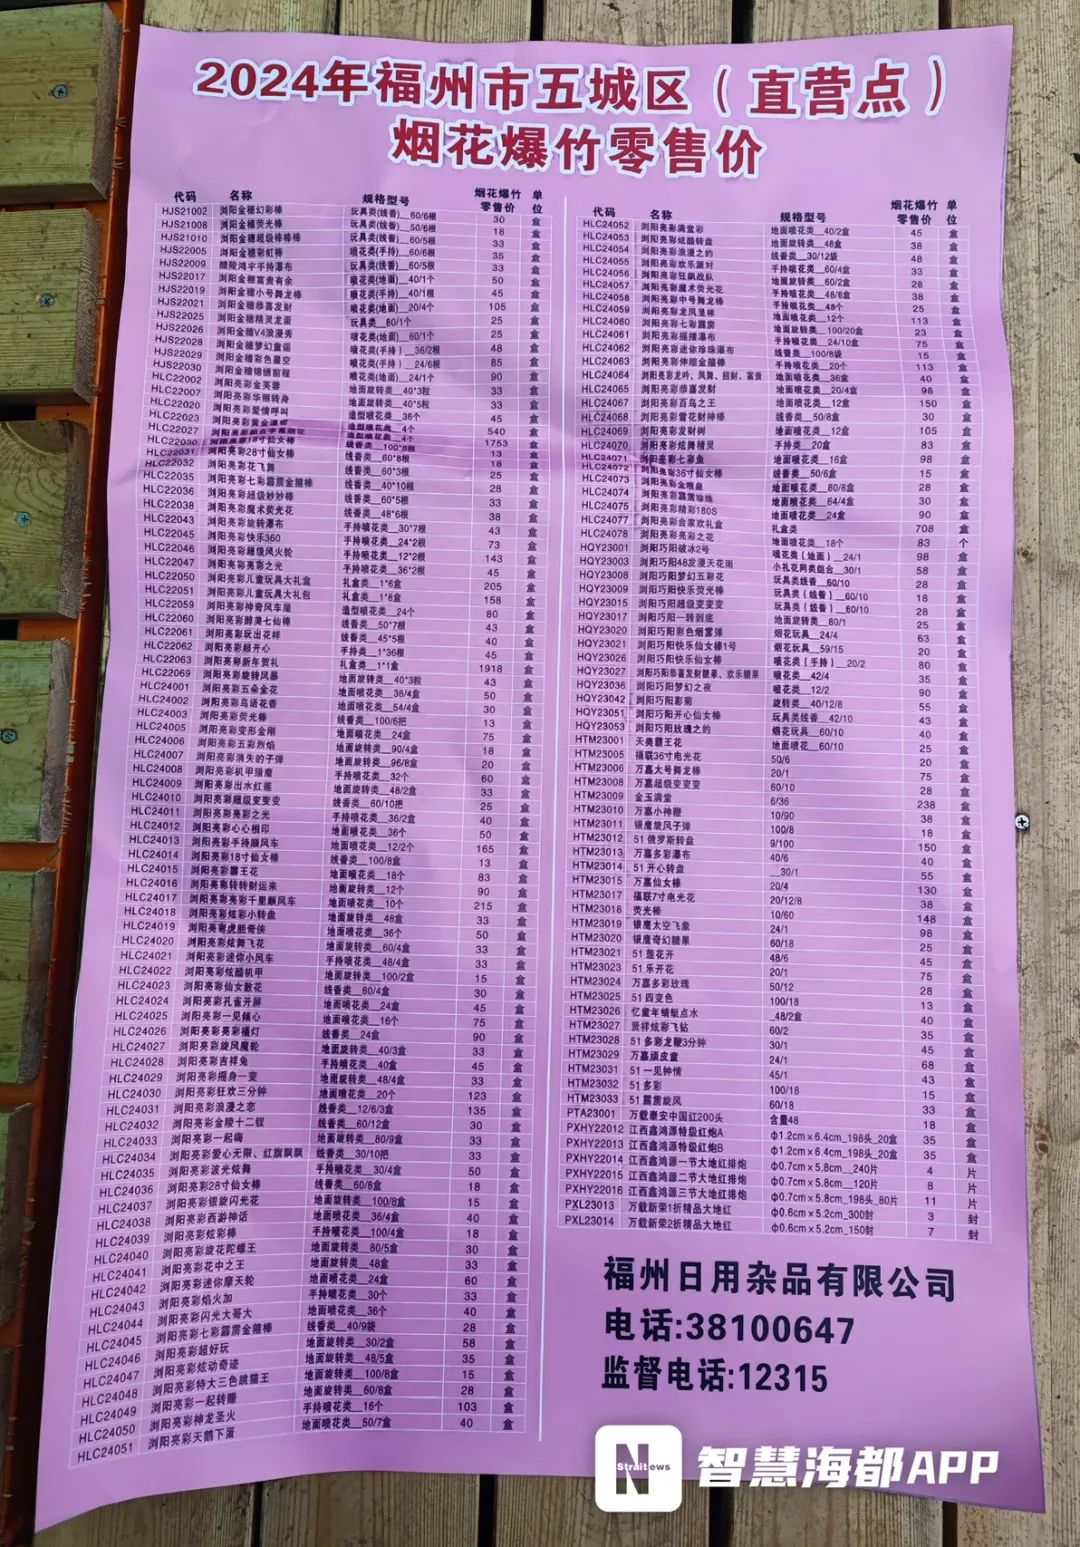 2024年福州市五城区（直营点）
烟花爆竹零售价
代码 名称 规格型号 烟花爆竹零售价 单位
HJS21002 浏阳金穗幻彩棒 玩具类(线香)__60/6根 30 盒
HJS21008 浏阳金穗荧光棒 玩具类(线香)__50/6根 18 盒
HJS21010 浏阳金穗超级棒棒棒 玩具类(线香)__60/5根 33 盒
HJS22005 浏阳金穗彩虹棒 喷花类(手持)__60/6根 35 盒
HJS22009 醴陵鸿宇手持瀑布 玩具类(线香)__60/5根 33 盒
HJS22017 浏阳金穗富贵有余 喷花类(地面)__40/1个 50 盒
HJS22019 浏阳金穗小号舞龙棒 喷花类(手持)__40/1根 45 盒
HJS22021 浏阳金穗恭喜发财 喷花类(地面)__20/4个 105 盒
HJS22025 浏阳金穗精灵龙蛋 玩具类__80/1个 25 盒
HJS22026 浏阳金穗V4浪漫秀 喷花类(地面)__60/1个 25 盒
HJS22028 浏阳金穗梦幻童谣 喷花类(手持)__36/2根 48 盒
HJS22029 浏阳金穗彩色星空 喷花类(手持)__24/6根 85 盒
HJS22030 浏阳金穗锦绣前程 喷花类(地面)__24/1个 90 盒
HLC22002 浏阳亮彩金芙蓉 地面旋转类__40*3粒 33 盒
HLC22007 浏阳亮彩华丽转身 地面旋转类__40*5粒 33 盒
HLC22020 浏阳亮彩爱情呼叫 造型喷花类__36个 45 盒
HLC22023 浏阳亮彩黄金 造型喷花类__4个 540 盒
HLC22027 造型喷花类__4个 1753 盒
HLC22030 浏阳亮彩18寸仙女棒 线香类__100*8根 13 盒
HLC22031 浏阳亮彩28寸仙女棒 线香类__60*8根 18 盒
HLC22032 浏阳亮彩花飞舞 线香类__60*3根 25 盒
HLC22035 浏阳亮彩七彩霹雳金箍棒 线香类__40*10根 28 盒
HLC22036 浏阳亮彩超级妙妙棒 线香类__60*5根 33 盒
HLC22038 浏阳亮彩魔术荧光花 线香类__48*6根 38 盒
HLC22043 浏阳亮彩旋转瀑布 手持喷花类__30*7根 43 盒
HLC22045 浏阳亮彩快乐360 手持喷花类__24*2根 73 盒
HLC22046 浏阳亮彩超级风火轮 手持喷花类__12*2根 143 盒
HLC22047 浏阳亮彩亮彩之光 手持喷花类__36*2根 45 盒
HLC22050 浏阳亮彩儿童玩具大礼盒 礼盒类__1*6盒 205 盒
HLC22051 浏阳亮彩儿童玩具大礼包 礼盒类__1*8盒 158 盒
HLC22059 浏阳亮彩神奇风车屋 造型喷花类__24个 80 盒
HLC22060 浏阳亮彩醇美七仙棒 线香类__50*7根 43 盒
HLC22061 浏阳亮彩玩出花样 线香类__45*5根 40 盒
HLC22062 浏阳亮彩超开心 手持类__1*36根 45 盒
HLC22063 浏阳亮彩新年贺礼 礼盒类__1*1盒 1918 盒
HLC22069 浏阳亮彩旋转风暴 地面旋转类__40*3粒 43 盒
HLC24001 浏阳亮彩五朵金花 地面喷花类__36/4盒 50 盒
HLC24002 浏阳亮彩鸟语花香 地面喷花类__54/4盒 30 盒
HLC24003 浏阳亮彩荧光棒 线香类__100/6把 13 盒
HLC24005 浏阳亮彩变形金刚 地面喷花类__24盒 75 盒
HLC24006 浏阳亮彩五彩烈焰 地面旋转类__90/4盒 18 盒
HLC24007 浏阳亮彩消失的子弹 地面旋转类__96/8盒 20 盒
HLC24008 浏阳亮彩机甲猎鹰 手持喷花类__32个 60 盒
HLC24009 浏阳亮彩出水红莲 地面旋转类__48/2盒 33 盒
HLC24010 浏阳亮彩超级变变变 线香类__60/10把 25 盒
HLC24011 浏阳亮彩亮彩之光 手持喷花类__36/2盒 40 盒
HLC24012 浏阳亮彩心心相印 地面喷花类__36个 50 盒
HLC24013 浏阳亮彩手持顺风车 地面喷花类__12/2个 165 盒
HLC24014 浏阳亮彩18寸仙女棒 线香类__100/8盒 13 盒
HLC24015 浏阳亮彩霸王花 地面喷花类__18个 83 盒
HLC24016 浏阳亮彩转转财运来 地面旋转类__12个 90 盒
HLC24017 浏阳亮彩亮彩千里顺风车 地面喷花类__10个 215 盒
HLC24018 浏阳亮彩炫彩小转盘 地面旋转类__48盒 33 盒
HLC24019 浏阳亮彩虎胆奇侠 地面喷花类__36个 50 盒
HLC24020 浏阳亮彩炫舞飞花 地面旋转类__60/4盒 33 盒
HLC24021 浏阳亮彩迷你小风车 手持喷花类__48/4盒 33 盒
HLC24022 浏阳亮彩炫酷机甲 地面旋转类__100/2盒 15 盒
HLC24023 浏阳亮彩仙女散花 线香类__60/4盒 30 盒
HLC24024 浏阳亮彩孔雀开屏 地面喷花类__24盒 45 盒
HLC24025 浏阳亮彩一见倾心 地面喷花类__16个 75 盒
HLC24026 浏阳亮彩亮彩福灯 线香类__24盒 90 盒
HLC24027 浏阳亮彩旋风魔轮 地面旋转类__40/3盒 33 盒
HLC24028 浏阳亮彩吉祥兔 手持喷花类__40盒 45 盒
HLC24029 浏阳亮彩摇身一变 地面旋转类__48/4盒 33 盒
HLC24030 浏阳亮彩狂欢三分钟 地面喷花类__20个 123 盒
HLC24031 浏阳亮彩浪漫之恋 线香类__12/6/3盒 135 盒
HLC24032 浏阳亮彩金陵十二钗 线香类__60/12盒 30 盒
HLC24033 浏阳亮彩一起嗨 地面旋转类__80/9盒 33 盒
HLC24034 浏阳亮彩爱心无限、红旗飘飘 线香类__30/10把 33 盒
HLC24035 浏阳亮彩波光炫舞 手持类__30/4盒 50 盒
HLC24036 浏阳亮彩28寸仙女棒 线香类__60/8盒 18 盒
HLC24037 浏阳亮彩银旋闪光花 地面旋转类__100/8盒 15 盒
HLC24038 浏阳亮彩西游神话 地面喷花类__36/4盒 40 盒
HLC24039 浏阳亮彩炫彩棒 手持喷花类__100/4盒 18 盒
HLC24040 浏阳亮彩旋花陀螺王 地面旋转类__80/5盒 30 盒
HLC24041 浏阳亮彩花中之王 地面旋转类__48盒 33 盒
HLC24042 浏阳亮彩迷你摩天轮 地面喷花类__24盒 60 盒
HLC24043 浏阳亮彩焰火加 手持喷花类__30个 33 盒
HLC24044 浏阳亮彩闪光大哥大 地面喷花类__36个 40 盒
HLC24045 浏阳亮彩七彩霹雳金箍棒 线香类__40/9袋 28 盒
HLC24046 浏阳亮彩超好玩 地面旋转类__30/2盒 58 盒
HLC24047 浏阳亮彩炫动奇迹 地面旋转类__48/5盒 35 盒
HLC24048 浏阳亮彩特大三色跳猫王 地面旋转类__100/8盒 15 盒
HLC24049 浏阳亮彩一起转赚 地面旋转类__60/8盒 28 盒
HLC24050 浏阳亮彩神龙圣火 手持喷花类__16个 103 盒
HLC24051 浏阳亮彩天鹅下蛋 地面喷花类__50/7盒 40 盒
代码 名称 规格型号 烟花爆竹零售价 单位
HLC24052 浏阳亮彩满堂彩 地面喷花类__40/2盒 45 盒
HLC24053 浏阳亮彩炫酷转盘 地面旋转类__48盒 38 盒
HLC24054 浏阳亮彩浪漫之约 线香类__30/12袋 48 盒
HLC24055 浏阳亮彩欢乐派对 手持喷花类__60/4盒 33 盒
HLC24056 浏阳亮彩狂飙战队 地面旋转类__60/2盒 28 盒
HLC24057 浏阳亮彩魔术荧光花 手持喷花类__48/6盒 38 盒
HLC24058 浏阳亮彩中号舞龙棒 手持喷花类__48个 25 盒
HLC24059 浏阳亮彩龙凤呈祥 地面喷花类__12个 113 盒
HLC24060 浏阳亮彩七彩霹雳 地面旋转类__100/20盒 23 盒
HLC24061 浏阳亮彩摇摆瀑布 手持喷花类__24/10盒 75 盒
HLC24062 浏阳亮彩迷你珍珠瀑布 线香类__100/8袋 15 盒
HLC24063 浏阳亮彩伸缩金箍棒 手持喷花类__20个 113 盒
HLC24064 浏阳亮彩龙吟、凤舞、招财、富贵 地面喷花类__36盒 40 盒
HLC24065 浏阳亮彩恭喜发财 地面喷花类__20/4盒 98 盒
HLC24067 浏阳亮彩百鸟之王 地面喷花类__12盒 150 盒
HLC24068 浏阳亮彩雪花财神棒 线香类__50/8盒 30 盒
HLC24069 浏阳亮彩发财树 地面喷花类__12盒 105 盒
HLC24070 浏阳亮彩炫舞精灵 手持类__20盒 83 盒
HLC24071 浏阳亮彩七彩鱼 地面喷花类__16盒 98 盒
HLC24072 浏阳亮彩36寸仙女棒 线香类__50/6盒 15 盒
HLC24073 浏阳亮彩金喷泉 地面喷花类__80/8盒 28 盒
HLC24074 浏阳亮彩霹雳珍珠 地面喷花类__64/4盒 30 盒
HLC24075 浏阳亮彩精彩180S 地面喷花类__24盒 90 盒
HLC24077 浏阳亮彩合家欢礼盒 礼盒类 708 盒
HLC24078 浏阳亮彩亮彩之花 地面喷花类__18个 83 个
HQY23001 浏阳巧阳破冰2号 喷花类(地面)__24/1 98 盒
HQY23003 浏阳巧阳48发漫天花雨 小礼花同类组合__30/1 58 盒
HQY23008 浏阳巧阳梦幻五彩花 玩具类线香__60/10 28 盒
HQY23009 浏阳巧阳快乐荧光棒 玩具类(线香)__60/10 18 盒
HQY23015 浏阳巧阳超级变变变 玩具类(线香)__60/10 28 盒
HQY23017 浏阳巧阳一转到底 地面旋转类__80/1 25 盒
HQY23020 浏阳巧阳彩色烟雾弹 烟花玩具__24/4 63 盒
HQY23021 浏阳巧阳快乐仙女棒1号 烟花玩具__59/15 20 盒
HQY23026 浏阳巧阳快乐仙女棒 喷花类(手持)__20/2 80 盒
HQY23027 浏阳巧阳恭喜发财糖果、欢乐糖果 喷花类__42/4 35 盒
HQY23036 浏阳巧阳梦幻之夜 喷花类__12/2 90 盒
HQY23042 浏阳巧阳影菊 旋转类__40/12/8 55 盒
HQY23051 浏阳巧阳开心仙女棒 玩具类线香__42/10 43 盒
HQY23053 浏阳巧阳玫瑰之约 烟花玩具__60/10 40 盒
HTM23001 天美霸王花 地面喷花__60/10 25 盒
HTM23005 福联36寸电光花 50/6 20 盒
HTM23006 万嘉大号舞龙棒 20/1 75 盒
HTM23008 万嘉超级变变变 60/10 28 盒
HTM23009 金玉满堂 6/36 238 盒
HTM23010 万嘉小神鞭 10/90 38 盒
HTM23011 银鹰旋风子弹 100/8 18 盒
HTM23012 51俄罗斯转盘 9/100 150 盒
HTM23013 万嘉多彩瀑布 40/6 40 盒
HTM23014 51开心转盘 __30/1 55 盒
HTM23015 万嘉仙女棒 20/4 130 盒
HTM23017 福联7寸电光花 20/12/8 38 盒
HTM23018 荧光棒 10/60 148 盒
HTM23019 银鹰太空飞象 24/1 98 盒
HTM23020 银鹰奇幻糖果 60/18 25 盒
HTM23021 51莲花开 48/6 45 盒
HTM23023 51乐开花 20/1 75 盒
HTM23024 万嘉多彩玫瑰 50/12 28 盒
HTM23025 51四变色 100/18 13 盒
HTM23026 忆童年蜻蜓点水 __48/2盒 40 盒
HTM23027 贤祥炫彩飞钻 60/2 35 盒
HTM23028 51多彩龙鞭3分钟 30/1 45 盒
HTM23029 万嘉顽皮童 24/1 68 盒
HTM23031 51一见钟情 45/1 43 盒
HTM23032 51多彩 100/18 15 盒
HTM23033 51霹雳旋风 60/18 33 盒
PTA23001 万载泰安中国红200头 含量48 18 盒
PXHY22012 江西鑫鸿源特级红炮A φ1.2cm×6.4cm_198头_20盒 35 盒
PXHY22013 江西鑫鸿源特级红炮B φ1.2cm×6.4cm_198头_20盒 35 盒
PXHY22014 江西鑫鸿源一节大地红排炮 φ0.7cm×5.8cm__240片 4 片
PXHY22015 江西鑫鸿源二节大地红排炮 φ0.7cm×5.8cm__120片 8 片
PXHY22016 江西鑫鸿源三节大地红排炮 φ0.7cm×5.8cm_198头_80片 11 片
PXL23013 万载新荣1折精品大地红 φ0.6cm×5.2cm_300封 3 封
PXL23014 万载新荣2折精品大地红 φ0.6cm×5.2cm_150封 7 封
福州日用杂品有限公司
电话:38100647
监督电话:12315
N
Strait ews
智慧海都APP